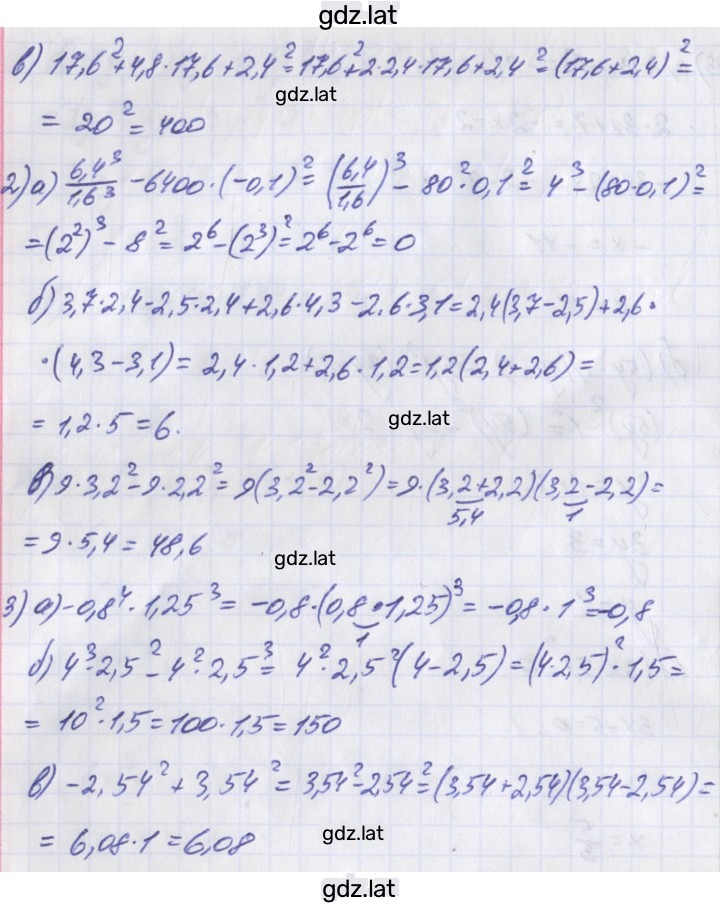 gdz.lat
в) 17,6²+4,8·17,6+2,4²=17,6²+2·2,4·17,6+2,4²=(17,6+2,4)²=
gdz.lat
= 20² = 400
2) а) 6,4³/1,6³ -6400·(-0,1)² = (6,4/1,6)³ - 80²·0,1² = 4³ - (80·0,1)² =
=(2²)³ - 8² = 2⁶ - (2³)² = 2⁶ - 2⁶ = 0
б) 3,7·2,4-2,5·2,4+2,6·4,3-2,6·3,1=2,4(3,7-2,5)+2,6·
·(4,3-3,1) = 2,4·1,2+2,6·1,2=1,2(2,4+2,6)=
= 1,2·5=6.
gdz.lat
в) 9·3,2²-9·2,2² = 9(3,2²-2,2²)=9·(3,2+2,2)(3,2-2,2)=
5,4 1
=9·5,4 = 48,6
gdz.lat
3) а) -0,8⁴·1,25³ = -0,8·(0,8·1,25)³ = -0,8·1³=-0,8
1
б) 4³·2,5² - 4²·2,5³ = 4²·2,5²(4-2,5)=(4·2,5)²·1,5=
= 10²·1,5=100·1,5=150
в) -2,54²+3,54² = 3,54²-2,54²=(3,54+2,54)(3,54-2,54)=
= 6,08·1=6,08
gdz.lat
gdz.lat